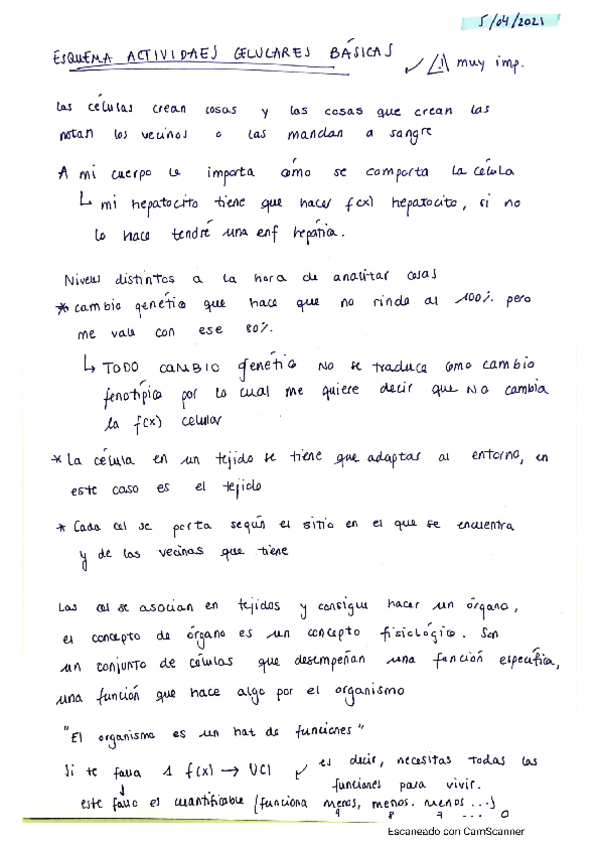 5/04/2021
ESQUEMA ACTIVIDAES CELULARES BÁSICAS ✓ ⚠ muy imp.
Las células crean cosas y las cosas que crean las
notan los vecinos o las mandan a sangre
A mi cuerpo le importa cómo se comporta la célula
↳ mi hepatocito tiene que hacer f(x) hepatocito, si no
lo hace tendré una enf hepática.
Niveles distintos a la hora de analizar cosas
* cambio genético que hace que no rinda al 100% pero
me vale con ese 80%.
↳ TODO CAMBIO genético NO se traduce como cambio
fenotípico por lo cual me quiere decir que NO cambia
la f(x) celular
* La célula en un tejido se tiene que adaptar al entorno, en
este caso es el tejido
* Cada cel se porta según el sitio en el que se encuentra
y de las vecinas que tiene
Las cel se asocian en tejidos y consigue hacer un órgano,
el concepto de órgano es un concepto fisiológico. Son
un conjunto de células que desempeñan una función específica,
una función que hace algo por el organismo
"El organismo es un hat de funciones"
Si te falla 1 f(x) → UCI ✓ es decir, necesitas todas las
funciones para vivir.
este fallo es cuantificable (funciona menos, menos. menos ...)
9 8 7 ... 0
Escaneado con CamScanner